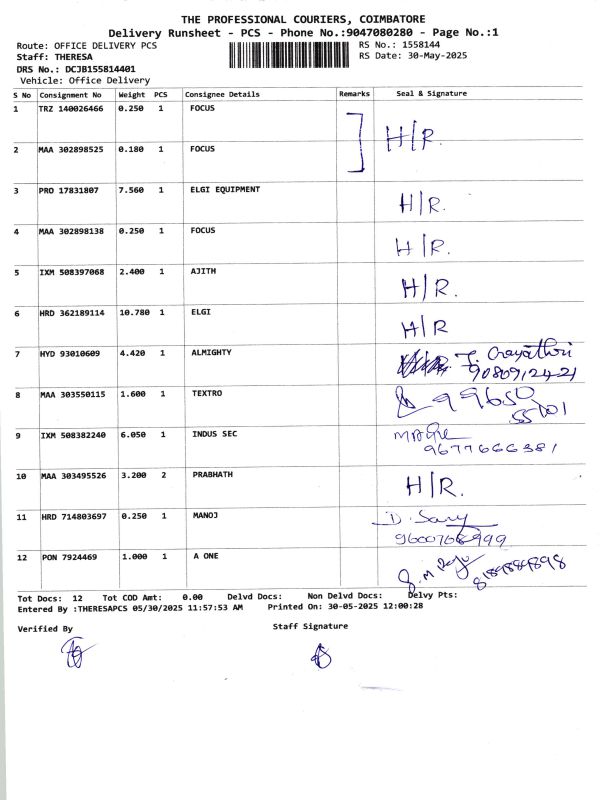 THE PROFESSIONAL COURIERS, COIMBATORE
Delivery Runsheet - PCS - Phone No.:9047080280 - Page No.:1
Route: OFFICE DELIVERY PCS RS No.: 1558144
Staff: THERESA RS Date: 30-May-2025
DRS No.: DCJB155814401
Vehicle: Office Delivery
S No Consignment No Weight PCS Consignee Details Remarks Seal & Signature
1 TRZ 140026466 0.250 1 FOCUS
H/R.
2 MAA 302898525 0.180 1 FOCUS
3 PRO 17831807 7.560 1 ELGI EQUIPMENT H/R.
4 MAA 302898138 0.250 1 FOCUS H/R.
5 IXM 508397068 2.400 1 AJITH H/R.
6 HRD 362189114 10.780 1 ELGI H/R
7 HYD 93010609 4.420 1 ALMIGHTY
8 MAA 303550115 1.600 1 TEXTRO 99650
55701
9 IXM 508382240 6.050 1 INDUS SEC
9677666381
10 MAA 303495526 3.200 2 PRABHATH H/R.
11 HRD 714803697 0.250 1 MANOJ D.
12 PON 7924469 1.000 1 A ONE
Tot Docs: 12 Tot COD Amt: 0.00 Delvd Docs: Non Delvd Docs: Delvy Pts:
Entered By :THERESAPCS 05/30/2025 11:57:53 AM Printed On: 30-05-2025 12:00:28
Verified By Staff Signature